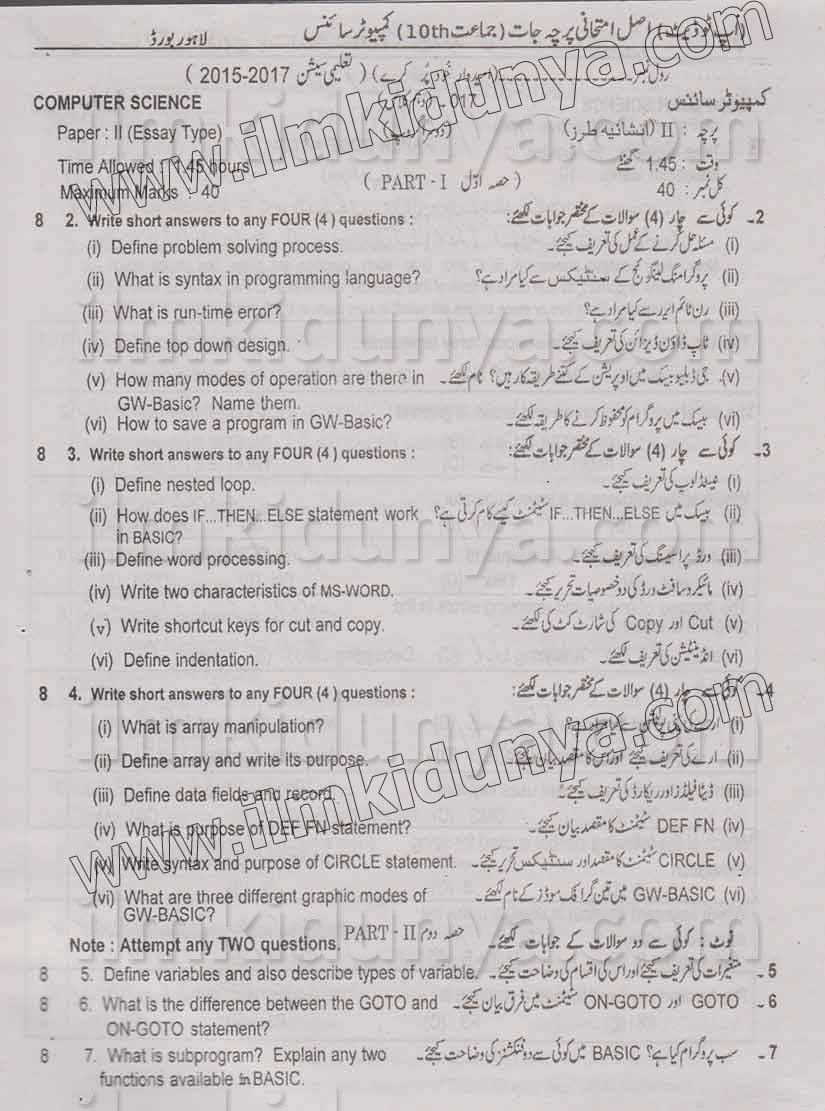 (اَپ ٹو ڈیٹ) اصل امتحانی پرچہ جات (جماعت 10th) کمپیوٹر سائنس لاہور بورڈ
رول نمبر (امیدوار خود پُر کرے) (تعلیمی سیشن 2015-2017)
COMPUTER SCIENCE 017 کمپیوٹر سائنس
Paper : II (Essay Type) (دوسرا گروپ) پرچہ : II (انشائیہ طرز)
Time Allowed : 1.45 hours وقت : 1.45 گھنٹے
Maximum Marks : 40 (PART - I حصہ اوّل) کل نمبر : 40
8 2. Write short answers to any FOUR (4 ) questions : 2۔ کوئی سے چار (4) سوالات کے مختصر جوابات لکھئے:
(i) Define problem solving process. (i) مسئلہ حل کرنے کے عمل کی تعریف کیجئے۔
(ii) What is syntax in programming language? (ii) پروگرامنگ لینگوئج کے سنٹیکس سے کیا مراد ہے؟
(iii) What is run-time error? (iii) رن ٹائم ایرر سے کیا مراد ہے؟
(iv) Define top down design. (iv) ٹاپ ڈاؤن ڈیزائن کی تعریف کیجئے۔
(v) How many modes of operation are there in (v) جی ڈبلیو بیسک میں اوپریشن کے کتنے طریقہ کار ہیں؟ نام لکھئے۔
GW-Basic? Name them.
(vi) How to save a program in GW-Basic? (vi) بیسک میں پروگرام کو محفوظ کرنے کا طریقہ لکھئے۔
8 3. Write short answers to any FOUR (4 ) questions : 3۔ کوئی سے چار (4) سوالات کے مختصر جوابات لکھئے:
(i) Define nested loop. (i) نیسٹڈ لوپ کی تعریف کیجئے۔
(ii) How does IF...THEN...ELSE statement work (ii) بیسک میں IF...THEN...ELSE سٹیٹمنٹ کیسے کام کرتی ہے؟
in BASIC?
(iii) Define word processing. (iii) ورڈ پراسیسنگ کی تعریف کیجئے۔
(iv) Write two characteristics of MS-WORD. (iv) مائیکروسافٹ ورڈ کی دو خصوصیات تحریر کیجئے۔
(v) Write shortcut keys for cut and copy. (v) Cut اور Copy کی شارٹ کٹ کی لکھئے۔
(vi) Define indentation. (vi) انڈینٹیشن کی تعریف لکھئے۔
8 4. Write short answers to any FOUR (4 ) questions : 4۔ کوئی سے چار (4) سوالات کے مختصر جوابات لکھئے:
(i) What is array manipulation? (i) سے کیا مراد ہے؟
(ii) Define array and write its purpose. (ii) ارے کی تعریف کیجئے اور اس کا مقصد بیان کیجئے۔
(iii) Define data fields and record. (iii) ڈیٹا فیلڈز اور ریکارڈ کی تعریف کیجئے۔
(iv) What is purpose of DEF FN statement? (iv) DEF FN سٹیٹمنٹ کا مقصد بیان کیجئے۔
(v) Write syntax and purpose of CIRCLE statement. (v) CIRCLE سٹیٹمنٹ کا مقصد اور سنٹیکس تحریر کیجئے۔
(vi) What are three different graphic modes of (vi) GW-BASIC میں تین گرافک موڈز کے نام لکھئے۔
GW-BASIC?
PART - II حصہ دوم
Note : Attempt any TWO questions. نوٹ : کوئی سے دو سوالات کے جوابات لکھئے۔
8 5. Define variables and also describe types of variable. 5۔ متغیرات کی تعریف کیجئے اور اس کی اقسام کی وضاحت کیجئے۔
8 6. What is the difference between the GOTO and 6۔ GOTO اور ON-GOTO سٹیٹمنٹ میں فرق بیان کیجئے۔
ON-GOTO statement?
8 7. What is subprogram? Explain any two 7۔ سب پروگرام کیا ہے؟ BASIC میں کوئی سے دو فنکشنز کی وضاحت کیجئے۔
functions available in BASIC.
www.ilmkidunya.com
www.ilmkidunya.com
ilmkidunya.com
ilmkidunya.com
ilmkidunya.com
ilmkidunya.com
ilmkidunya.com